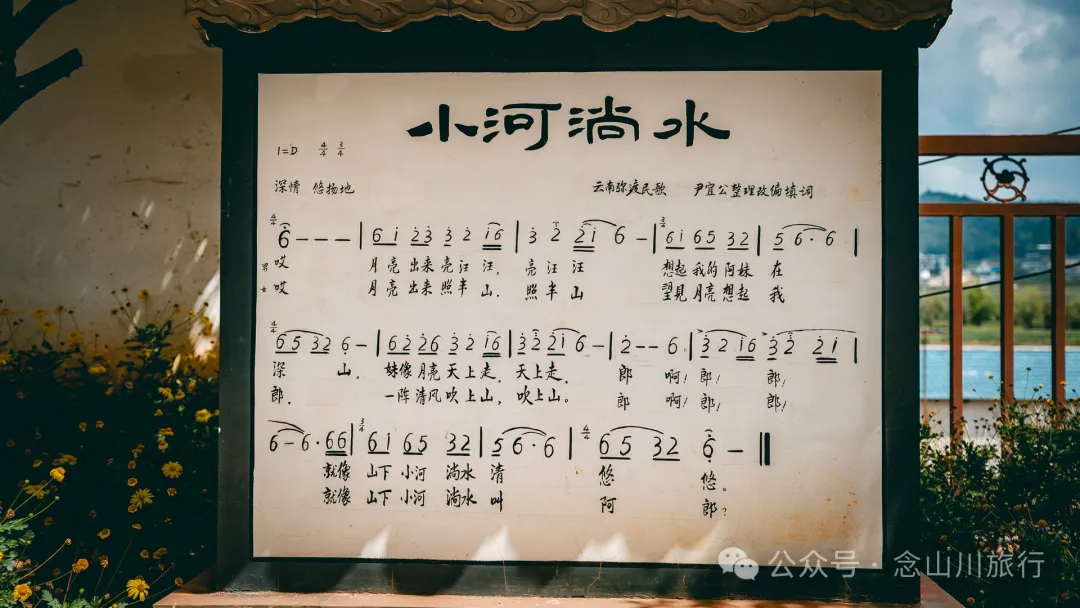 小河淌水
1=D 4/4 3/4
深情 悠扬地
云南弥渡民歌 尹宜公整理改编填词
4/4 6 - - - | 6 i 2 3 3 2 i 6 | 3 2 2 i 6 - | 3/4 6 i 6 5 3 2 | 5 6 · 6 |
男 哎 月亮出来亮汪汪，亮汪汪 想起我的阿妹在
女 哎 月亮出来照半山，照半山 望見月亮想起我
4/4 6 5 3 2 6 - | 6 2 2 6 3 2 i 6 | 3 2 2 i 6 - | 2 - - 6 | 3 2 i 6 3 2 2 i |
深 山， 妹像月亮天上走，天上走， 郎 啊！郎！ 郎！
郎， 一阵清风吹上山，吹上山。 郎 啊！郎！ 郎！
6 - 6 · 6 6 | 3/4 6 i 6 5 3 2 | 5 6 · 6 | 4/4 6 5 3 2 6 - ‖
就像 山下小河 淌水清 悠 悠。
就像 山下小河 淌水叫 阿 郎？
公众号 · 念山川旅行